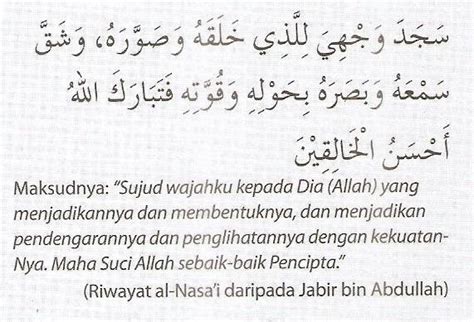 سَجَدَ وَجْهِيَ لِلَّذِي خَلَقَهُ وَصَوَّرَهُ، وَشَقَّ
سَمْعَهُ وَبَصَرَهُ بِحَوْلِهِ وَقُوَّتِهِ فَتَبَارَكَ اللهُ
أَحْسَنُ الْخَالِقِيْنَ
Maksudnya: “Sujud wajahku kepada Dia (Allah) yang
menjadikannya dan membentuknya, dan menjadikan
pendengarannya dan penglihatannya dengan kekuatan-
Nya. Maha Suci Allah sebaik-baik Pencipta.”
(Riwayat al-Nasa’i daripada Jabir bin Abdullah)